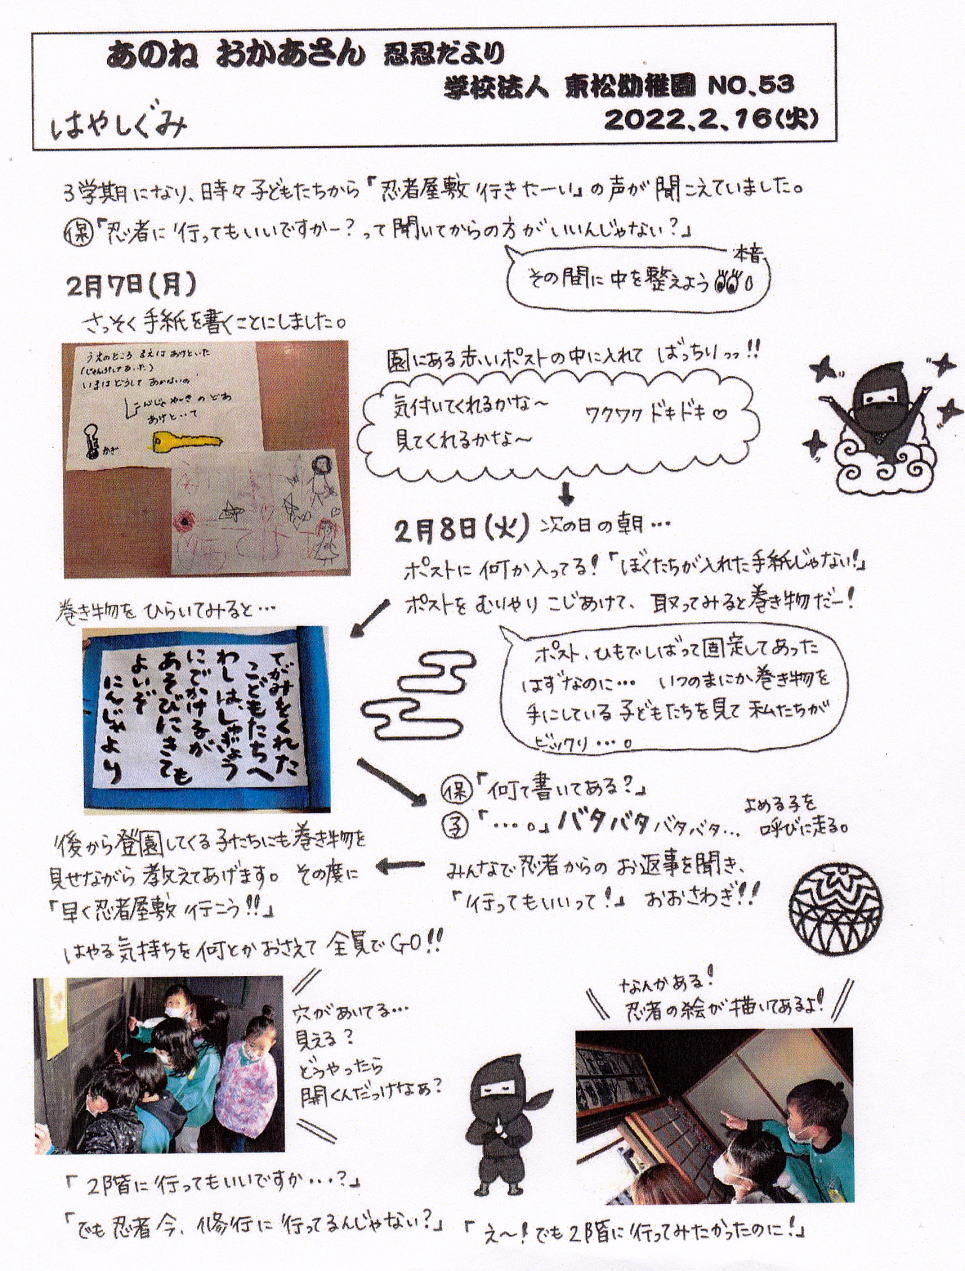 あのね おかあさん 忍忍だより
学校法人 東松幼稚園 NO.53
はやしぐみ
2022.2.16(火)
3学期になり、時々子どもたちから「忍者屋敷 行きたーい」の声が聞こえていました。
保「忍者に行ってもいいですかー?って聞いてからの方がいいんじゃない?」
本音
その間に中を整えよう
2月7日(月)
さっそく手紙を書くことにしました。
うえのところ まえは あけといた
いまは どうして あかないの
あけといて
かぎ
園にある赤いポストの中に入れて ばっちりっっ!!
気付いてくれるかな～
ワクワク ドキドキ♡
見てくれるかな～
2月8日(火) 次の日の朝…
ポストに何か入ってる!「ぼくたちが入れた手紙じゃない!」
ポストを むりやり こじあけて、取ってみると巻き物だー!
巻き物を ひらいてみると…
てがみをくれた
こどもたちへ
わしは、しゅぎょう
にでかけるが
あそびにきても
よいぞ
にんじゃより
ポスト、ひもでしばって固定してあった
はずなのに… いつのまにか巻き物を
手にしている子どもたちを見て 私たちが
ビックリ…。
保「何て書いてある?」
子「…。」バタバタ バタバタ…
よめる子を
呼びに走る。
みんなで忍者からの お返事を聞き、
「行ってもいいって!」 おおさわぎ!!
後から登園してくる子たちにも巻き物を
見せながら 教えてあげます。その度に
「早く忍者屋敷 行こう!!」
はやる気持ちを何とかおさえて 全員でGO!!
穴があいてる…
見える?
どうやったら
開くんだっけなぁ?
なんかある!
忍者の絵が描いてあるよ!
「2階に行ってもいいですか…?」
「でも忍者今、修行に行ってるんじゃない?」
「え～!でも2階に行ってみたかったのに!」